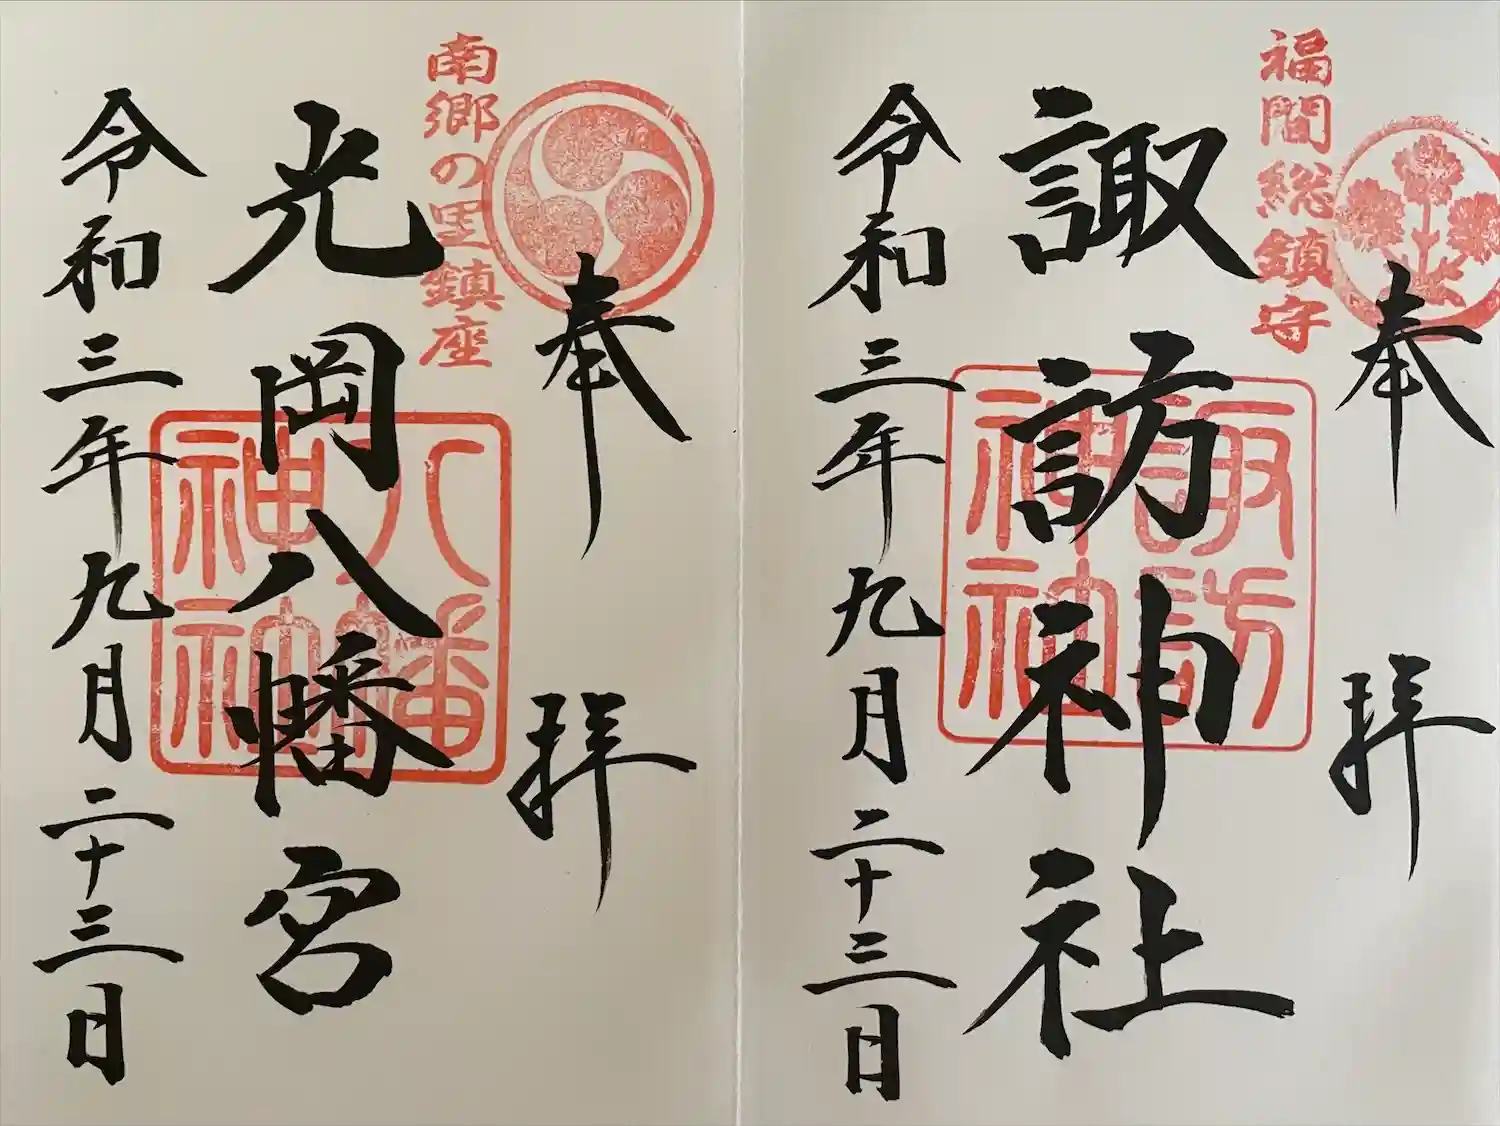 奉拝
福間総鎮守
諏訪神社
諏訪神社
令和三年九月二十三日
奉拝
南郷の里鎮座
光岡八幡宮
八幡神社
令和三年九月二十三日